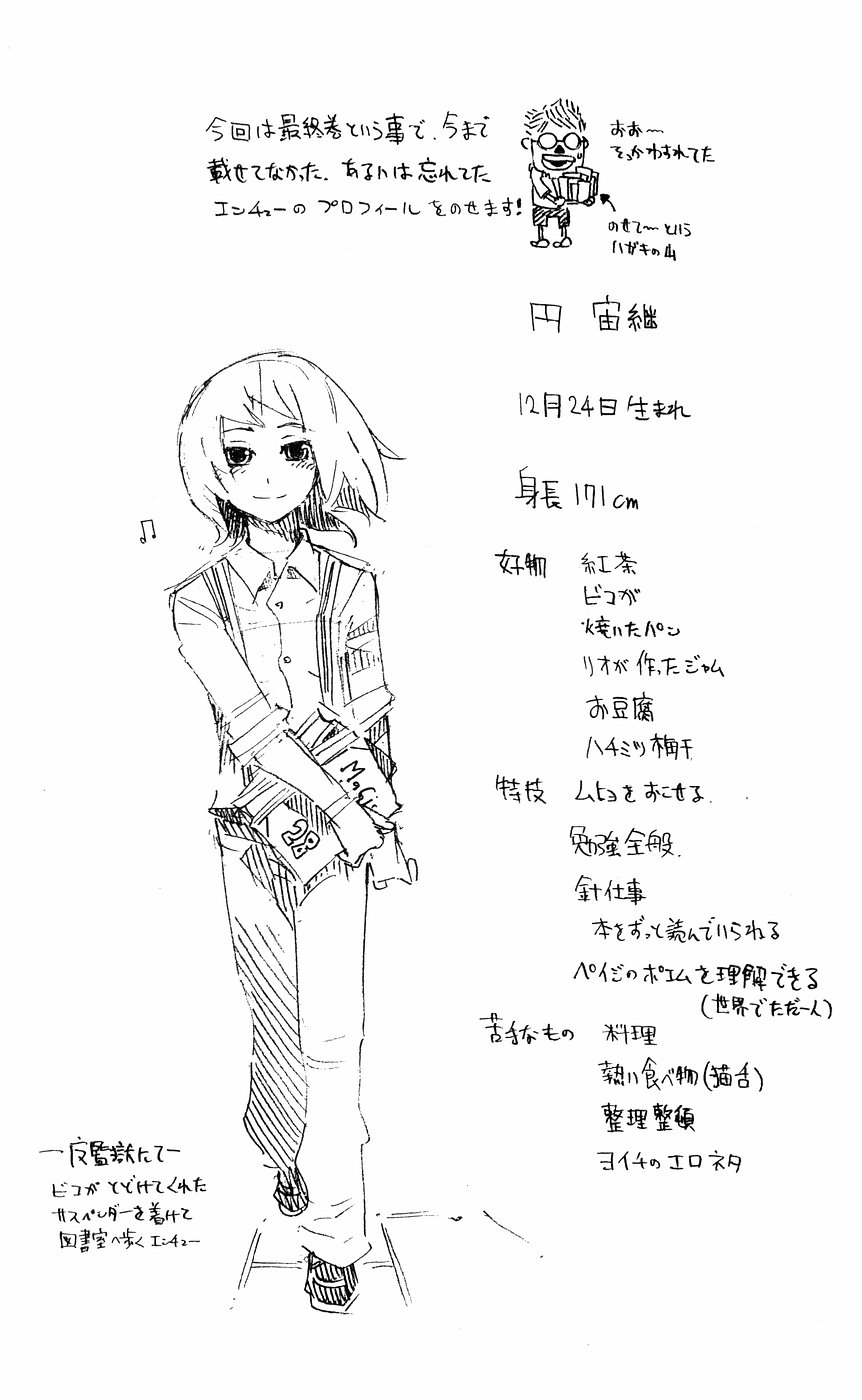 今回は最終巻という事で、今まで
載せてなかった、あるいは忘れてた
エンチューの プロフィール をのせます!
おお〜
そっかわすれてた
のせて〜という
ハガキの山
円 宙継
12月24日 生まれ
身長 171cm
好物 紅茶
ビコが
焼いたパン
リオが作ったジャム
お豆腐
ハチミツ梅干
特技 ムヒョをおこせる.
勉強全般.
針仕事
本をずっと読んでいられる
ペイジのポエムを理解できる
(世界でただ一人)
苦手なもの 料理
熱い食べ物(猫舌)
整理整頓
ヨイチのエロネタ
♫
MaGic
28
ー反監獄にてー
ビコが とどけてくれた
サスペンダーを着けて
図書室へ歩く エンチュー